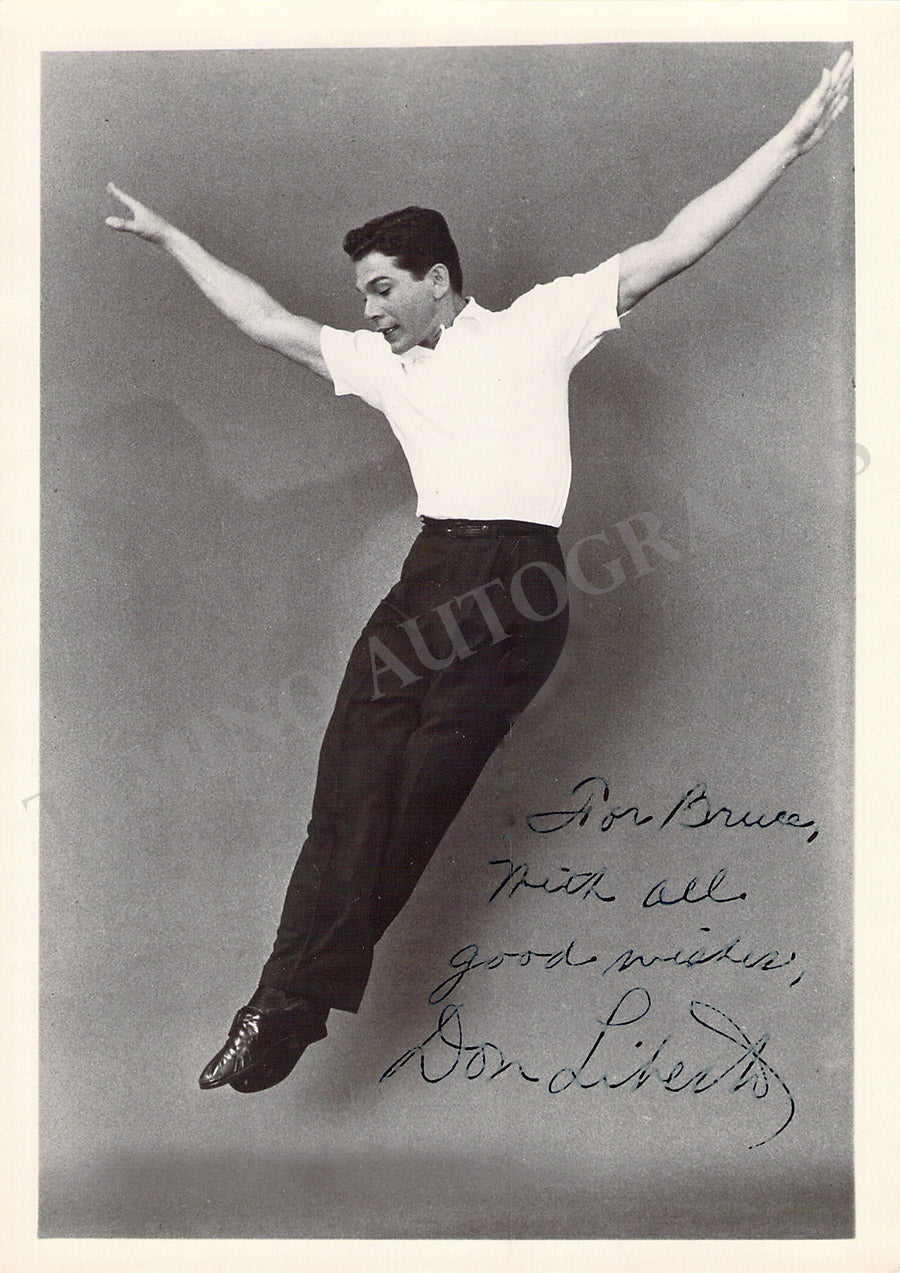 For Bruce,
With all
good wishes,
Don Liberto
TAMINO AUTOGRAPHS